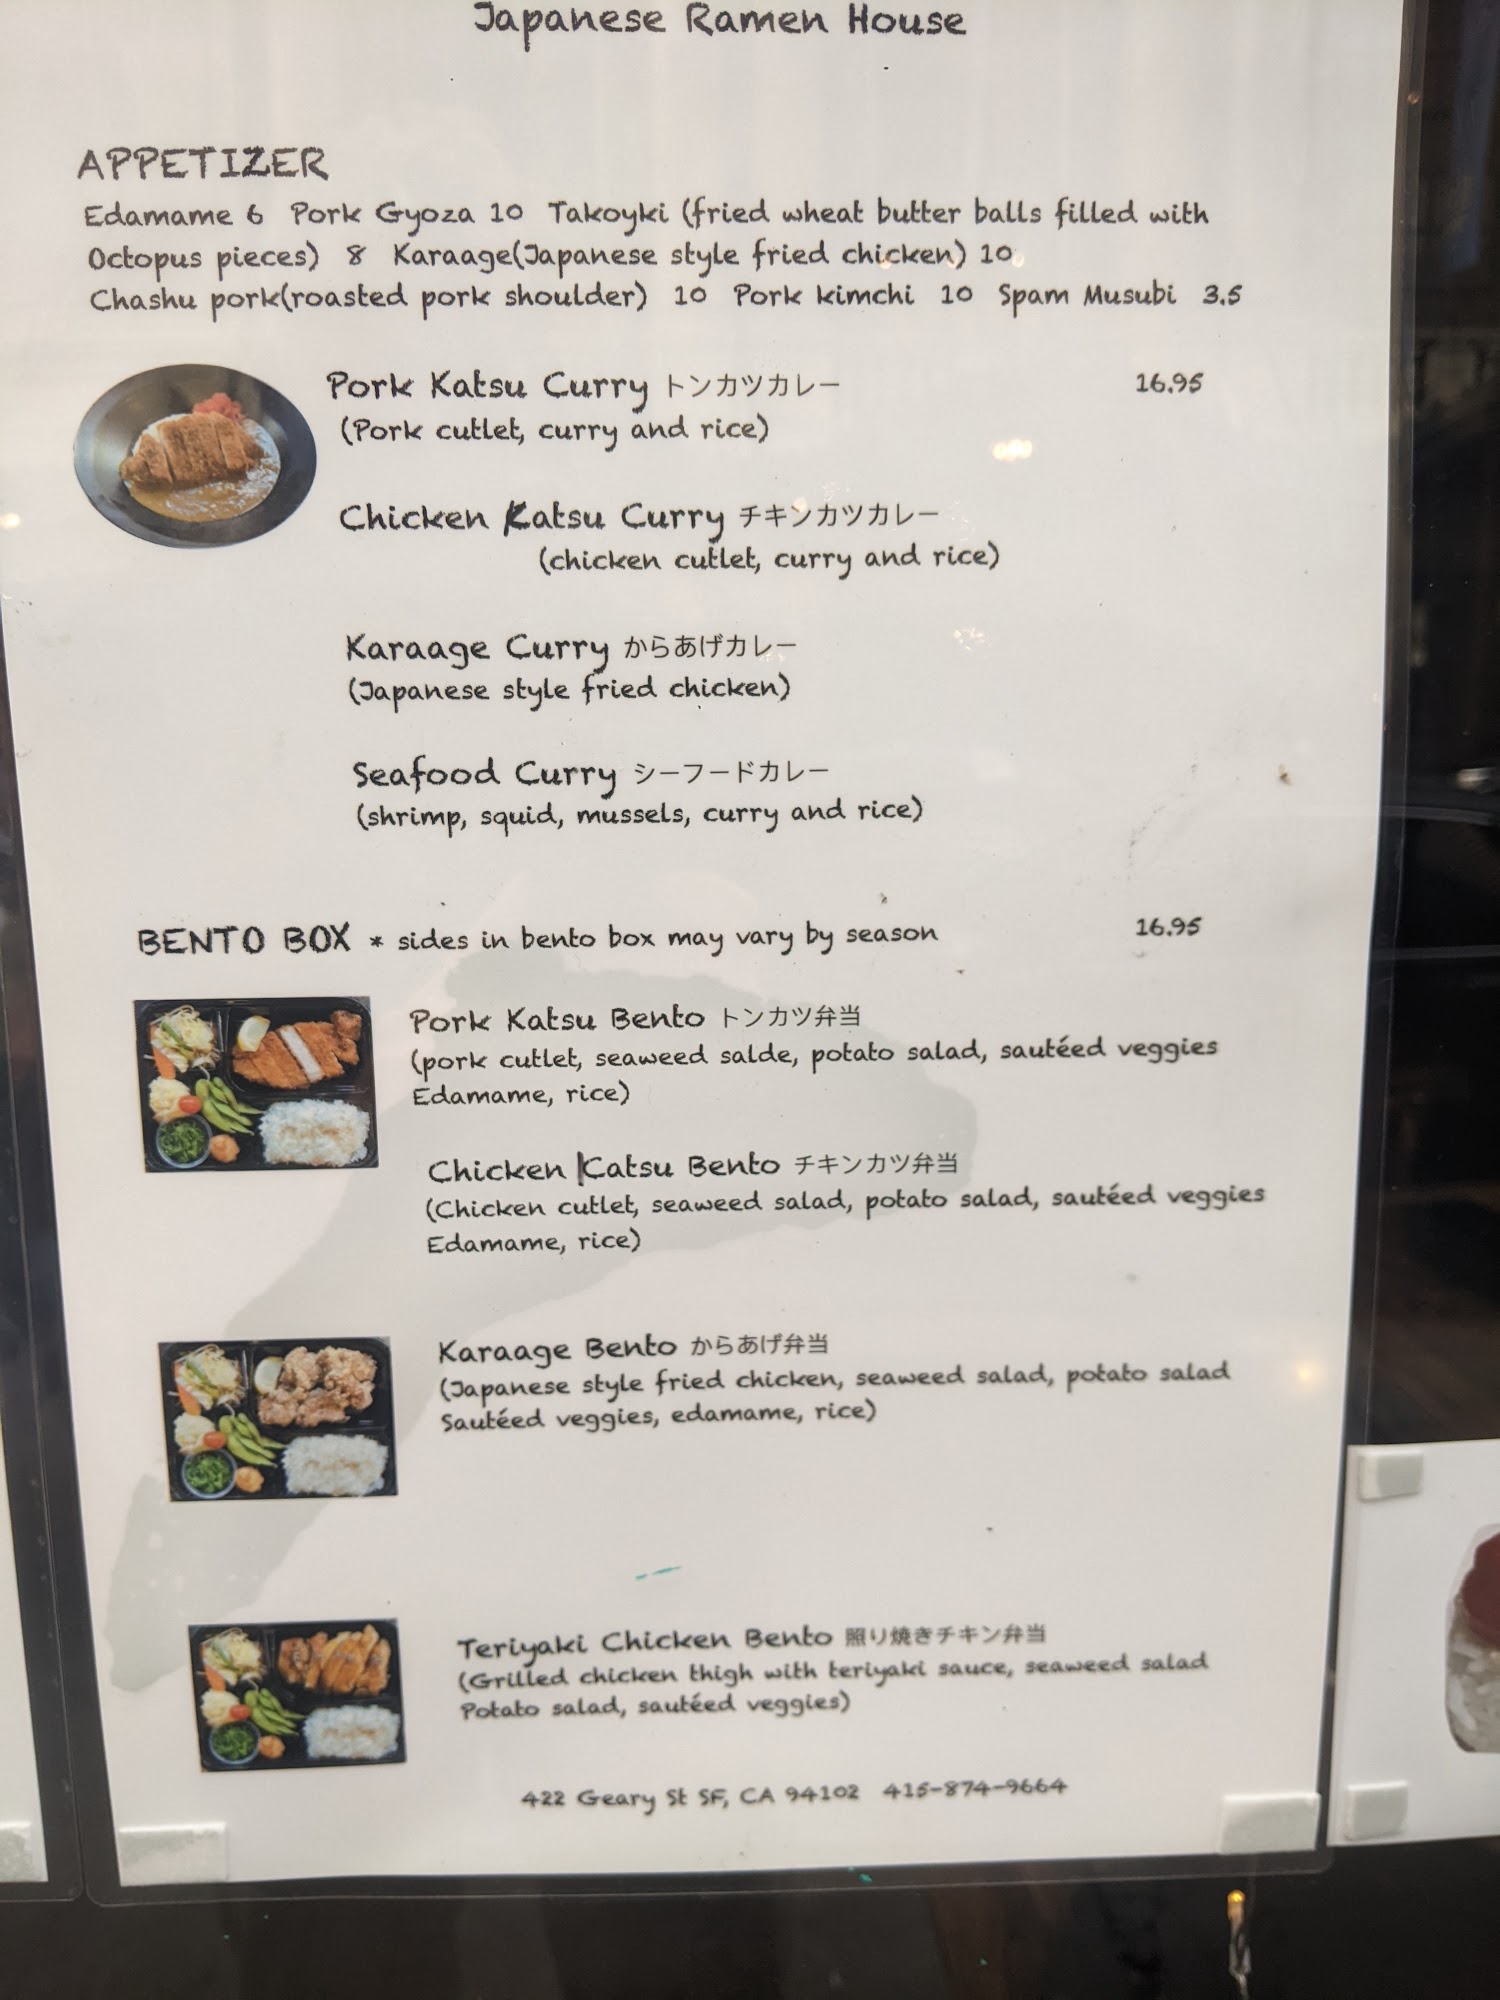 Japanese Ramen House
APPETIZER
Edamame 6 Pork Gyoza 10 Takoyki (fried wheat butter balls filled with
Octopus pieces) 8 Karaage(Japanese style fried chicken) 10
Chashu pork(roasted pork shoulder) 10 Pork kimchi 10 Spam Musubi 3.5
Pork Katsu Curry トンカツカレー 16.95
(Pork cutlet, curry and rice)
Chicken Katsu Curry チキンカツカレー
(chicken cutlet, curry and rice)
Karaage Curry からあげカレー
(Japanese style fried chicken)
Seafood Curry シーフードカレー
(shrimp, squid, mussels, curry and rice)
BENTO BOX * sides in bento box may vary by season 16.95
Pork Katsu Bento トンカツ弁当
(pork cutlet, seaweed salde, potato salad, sautéed veggies
Edamame, rice)
Chicken Katsu Bento チキンカツ弁当
(Chicken cutlet, seaweed salad, potato salad, sautéed veggies
Edamame, rice)
Karaage Bento からあげ弁当
(Japanese style fried chicken, seaweed salad, potato salad
Sautéed veggies, edamame, rice)
Teriyaki Chicken Bento 照り焼きチキン弁当
(Grilled chicken thigh with teriyaki sauce, seaweed salad
Potato salad, sautéed veggies)
422 Geary St SF, CA 94102 415-874-9664